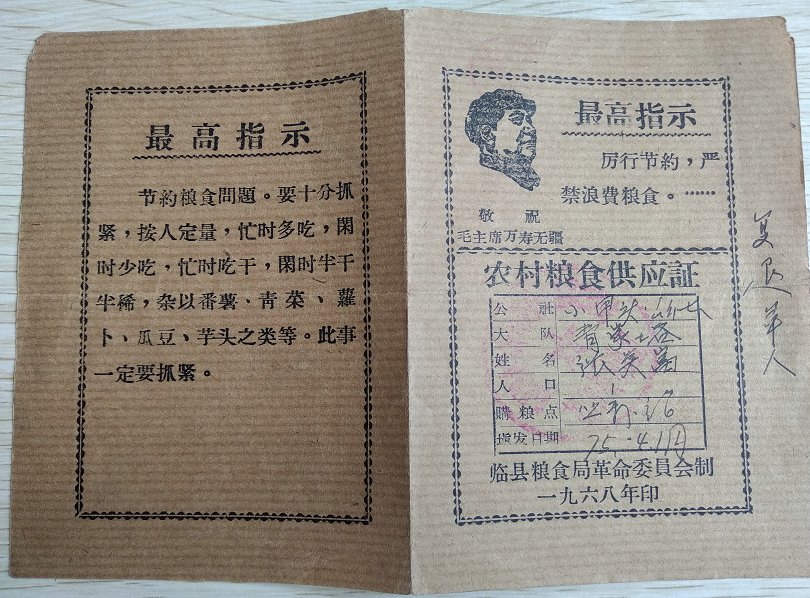 最高指示
节約粮食問題。要十分抓
紧，按人定量，忙时多吃，閑
时少吃，忙时吃干，閑时半干
半稀，杂以番薯、青菜、蘿
卜、瓜豆、芋头之类等。此事
一定要抓紧。
最高指示
厉行节約，严
禁浪費粮食。……
敬祝
毛主席万寿无疆
农村粮食供应証
公社
大队
姓名 张
人口 1
購粮点
填发日期 75.4.1
临县粮食局革命委員会制
一九六八年印
军人